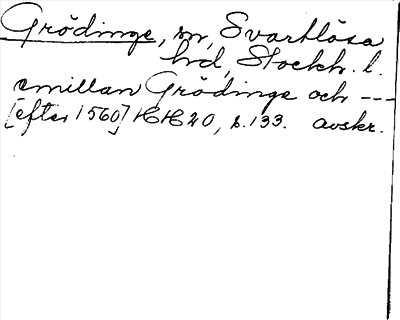 Grödinge, sn, Svartlösa
hd, Stockh. l.
emillan Grödinge och ---
[efter 1560] HH 20, s. 133. avskr.